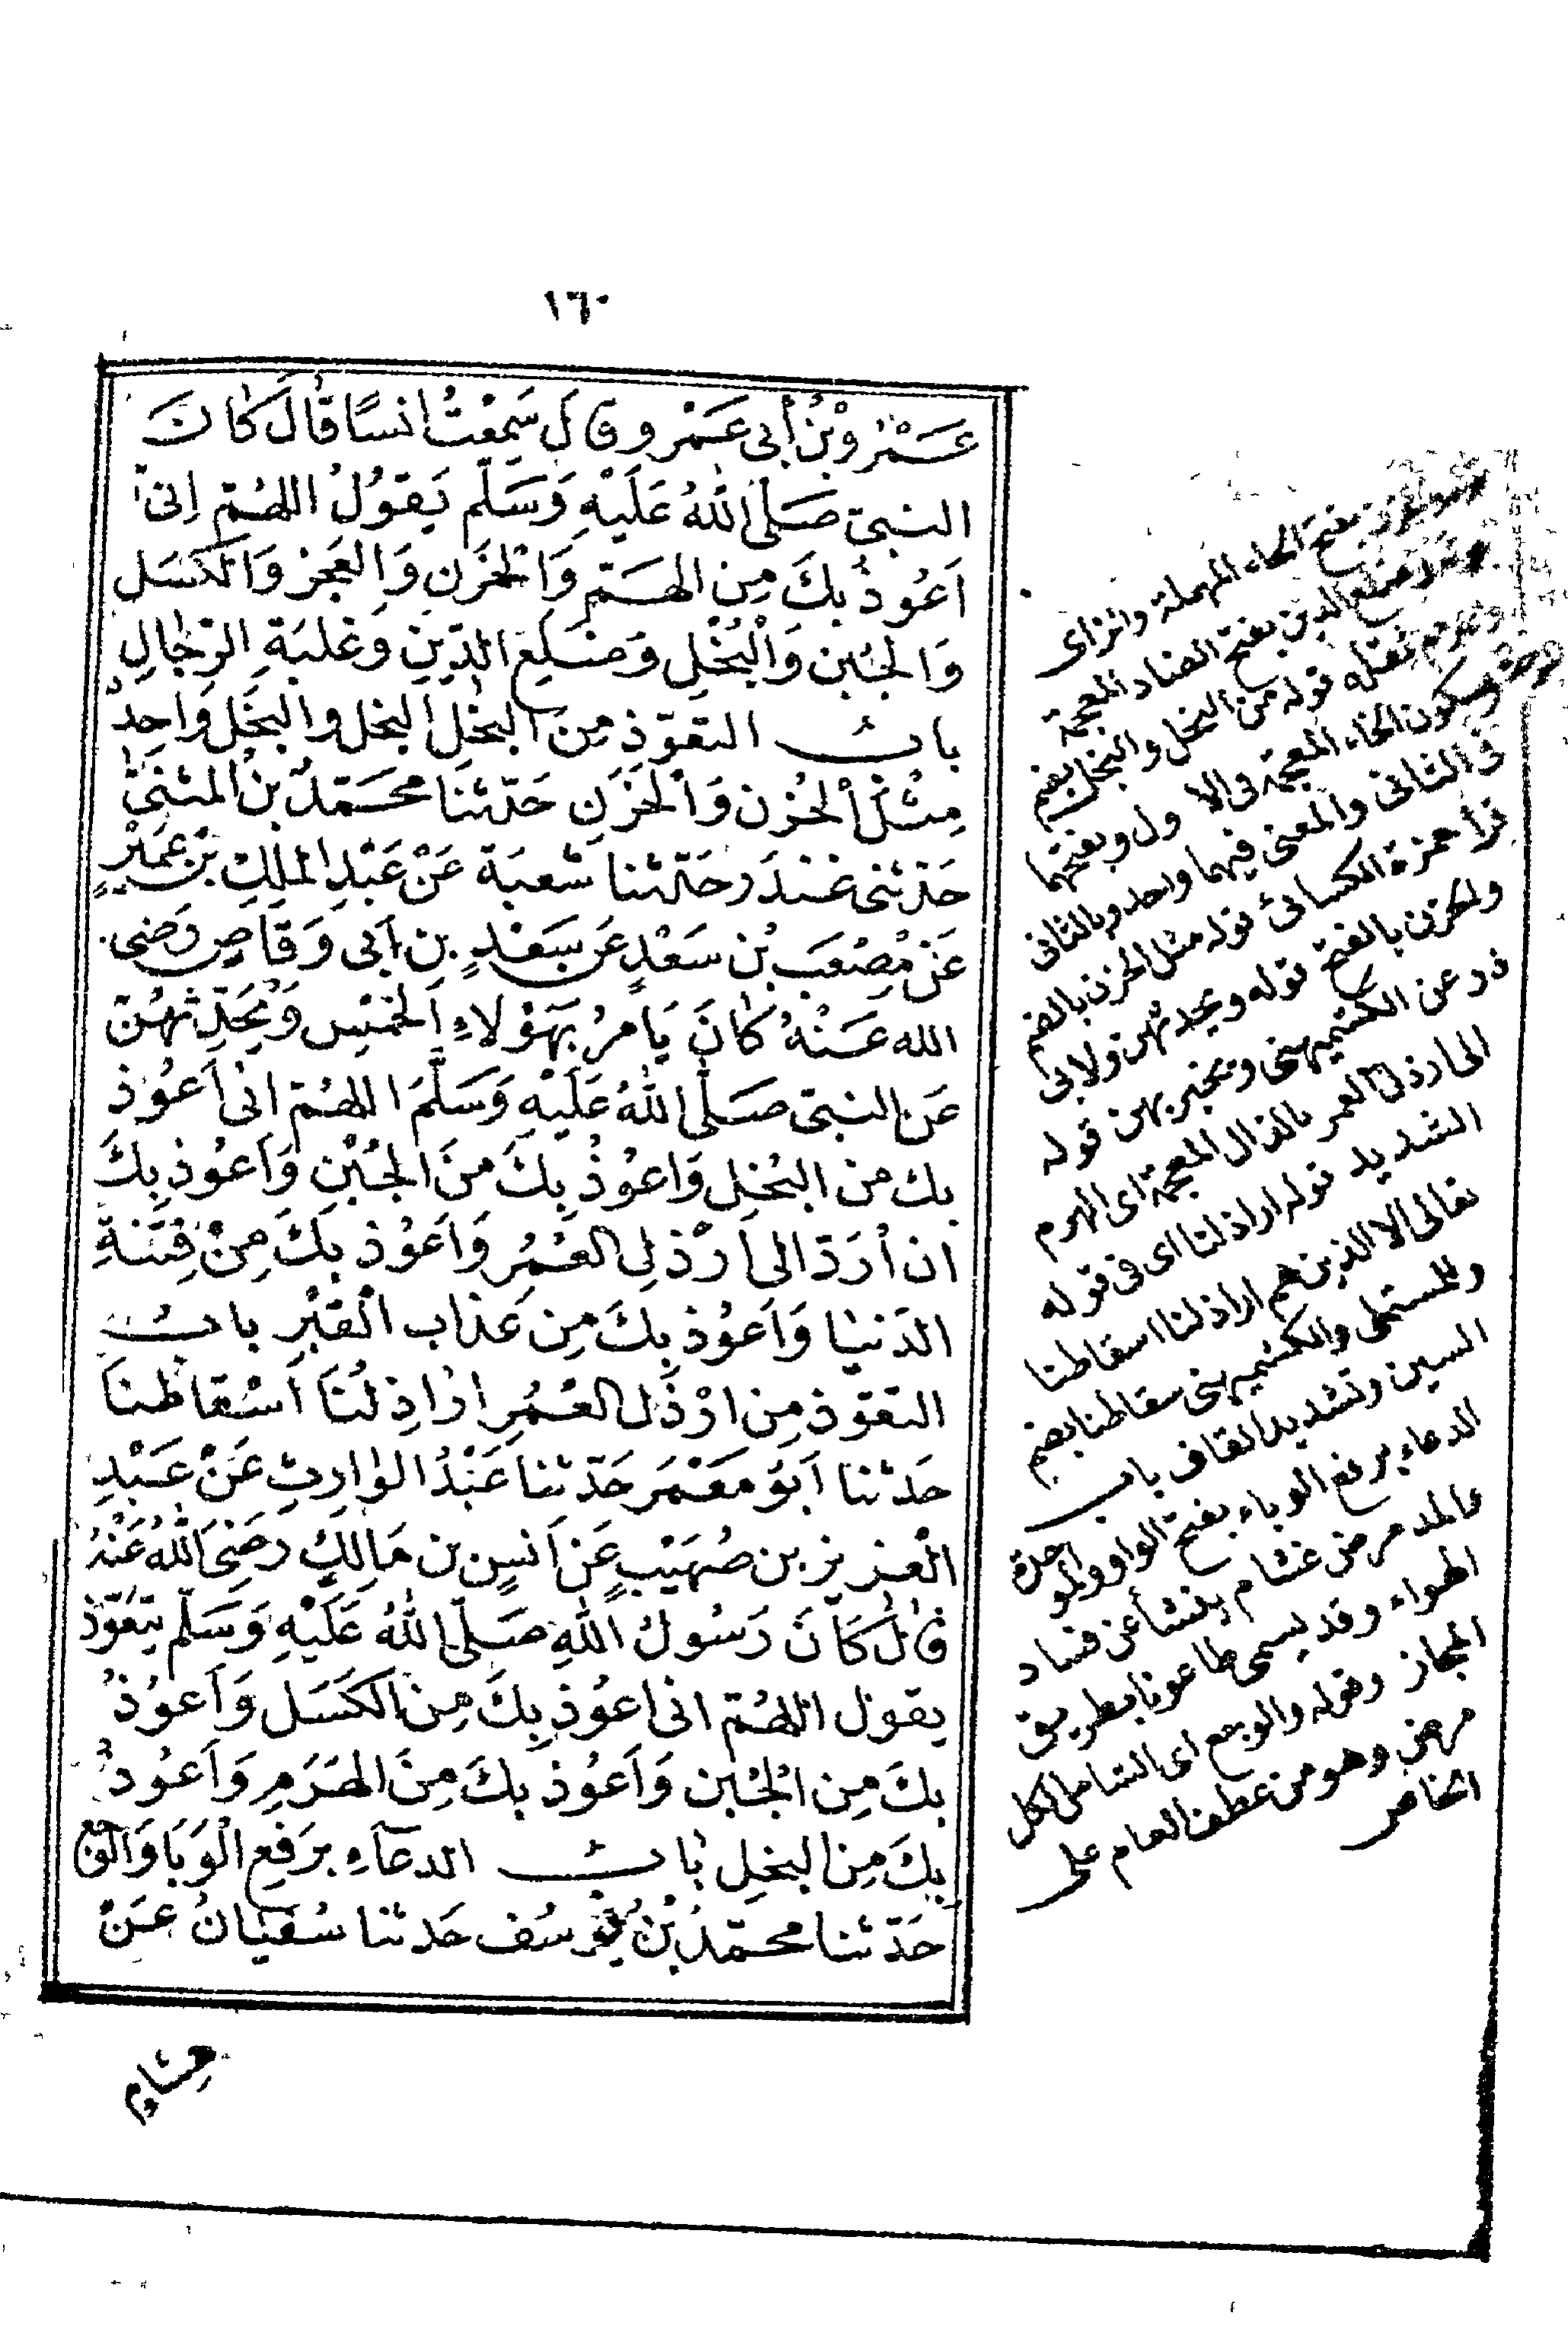 ١٦٠
عَمْرُو بْنُ أَبِي عَمْرٍو قَالَ سَمِعْتُ أَنَسًا قَالَ كَانَ
النبىّ صَلَّى اللهُ عَلَيْهِ وَسَلَّم يَقُولُ اللهُمّ اِنىّ
اَعُوذُ بِكَ مِن الهَمِّ وَالْحَزَنِ وَالْعَجْزِ وَالْكَسَلِ
وَالْجُبْنِ وَالْبُخْلِ وَضَلَعِ الدَّيْنِ وَغَلَبَةِ الرِّجَالِ
بابُ التعوّذِ مِنَ البُخْلِ البُخل والبَخَل وَاحِدٌ
مِثْلُ الْحُزْنِ وَالْحَزَنِ حَدّثنَا محمّدُ بْنُ المثنىّ
حَدّثنى غُنْدَر حَدّثنا شُعبَة عَنْ عَبْدِ المَلِكِ بْنِ عُمَيْرٍ
عَنْ مُصْعَبِ بْنِ سَعْدٍ عَن سَعْدِ بنِ أَبِى وَقَّاصٍ رَضِى
الله عَنْهُ كَانَ يَأمرُ بهَؤلاءِ الخَمْسِ وَيُحَدّثُهُنَّ
عَنِ النبىّ صَلَّى اللهُ عَلَيْهِ وَسَلَّمَ اللهُمّ انى اَعُوذ
بك من البُخْلِ وَاعُوذُ بِكَ مِنَ الجُبْنِ وَاَعُوذ بِكَ
ان اُرَدّ الى اَرْذلِ العُمُرِ وَاَعُوذ بِكَ مِنْ فِتْنَةِ
الدّنيا وَاَعُوذ بِكَ مِن عَذابِ القَبْرِ بابُ
التعوّذ مِن ارْذَلِ العُمُرِ اراذِلُنَا اَسْقاطنَا
حَدثنا اَبُو مَعْمَر حَدّثنا عَبْدُ الوارِثِ عَنْ عَبْدِ
الْعزيز بن صُهَيْبٍ عَن اَنسِ بن مَالِكٍ رَضِىَ اللهُ عَنْهُ
قالَ كَانَ رَسُولُ اللهِ صَلّى اللهُ عَلَيْهِ وَسَلّم يَتَعَوّذ
يقول اللهُمّ انى اعُوذ بِكَ مِنَ الكَسَلِ وَاَعوُذُ
بكَ مِن الْجُبْنِ وَاَعُوذ بِكَ مِنَ الهَرَمِ وَاَعُوذُ
بِكَ مِنَ البخلِ بَابُ الدعَاءِ بِرَفعِ الْوَبَا وَالوَجَع
حَدّثنا محمّدُ بْنُ يُوسُف حَدثنا سُفيَانُ عَنْ
بفتح الحاء المهملة والزاى
وضلع الدين بفتح الضاد المعجمة
ثقله قوله من البخل والبخل بضم
وسكون الخاء المعجمة فى الاول وبفتحهما
فى الثانى والمعنى فيهما واحد وبالثانى
قرأ حمزة الكسائى قوله مثل الحزن بالضم
والحزن بالفتح قوله ويحدثهن ولابى
ذر عن الكشميهنى ويخبر بهن قوله
الى ارذل العمر بالذال المعجمة اى الهرم
الشديد قوله اراذلنا اى فى قوله
تعالى الا الذين هم اراذلنا اسقاطنا
وللمستملى والكشميهنى سقاطنا بضم
السين وتشديد القاف باب
الدعاء برفع الوباء بفتح الواو والموحدة
عالمد مرض عام ينشأ عن فساد
الهواء وقد يسمى طاعونا بطريق
المجاز وقوله والوجع اى الشامل لكل
مرض وهو من عطف العام على
الخاص
هشام